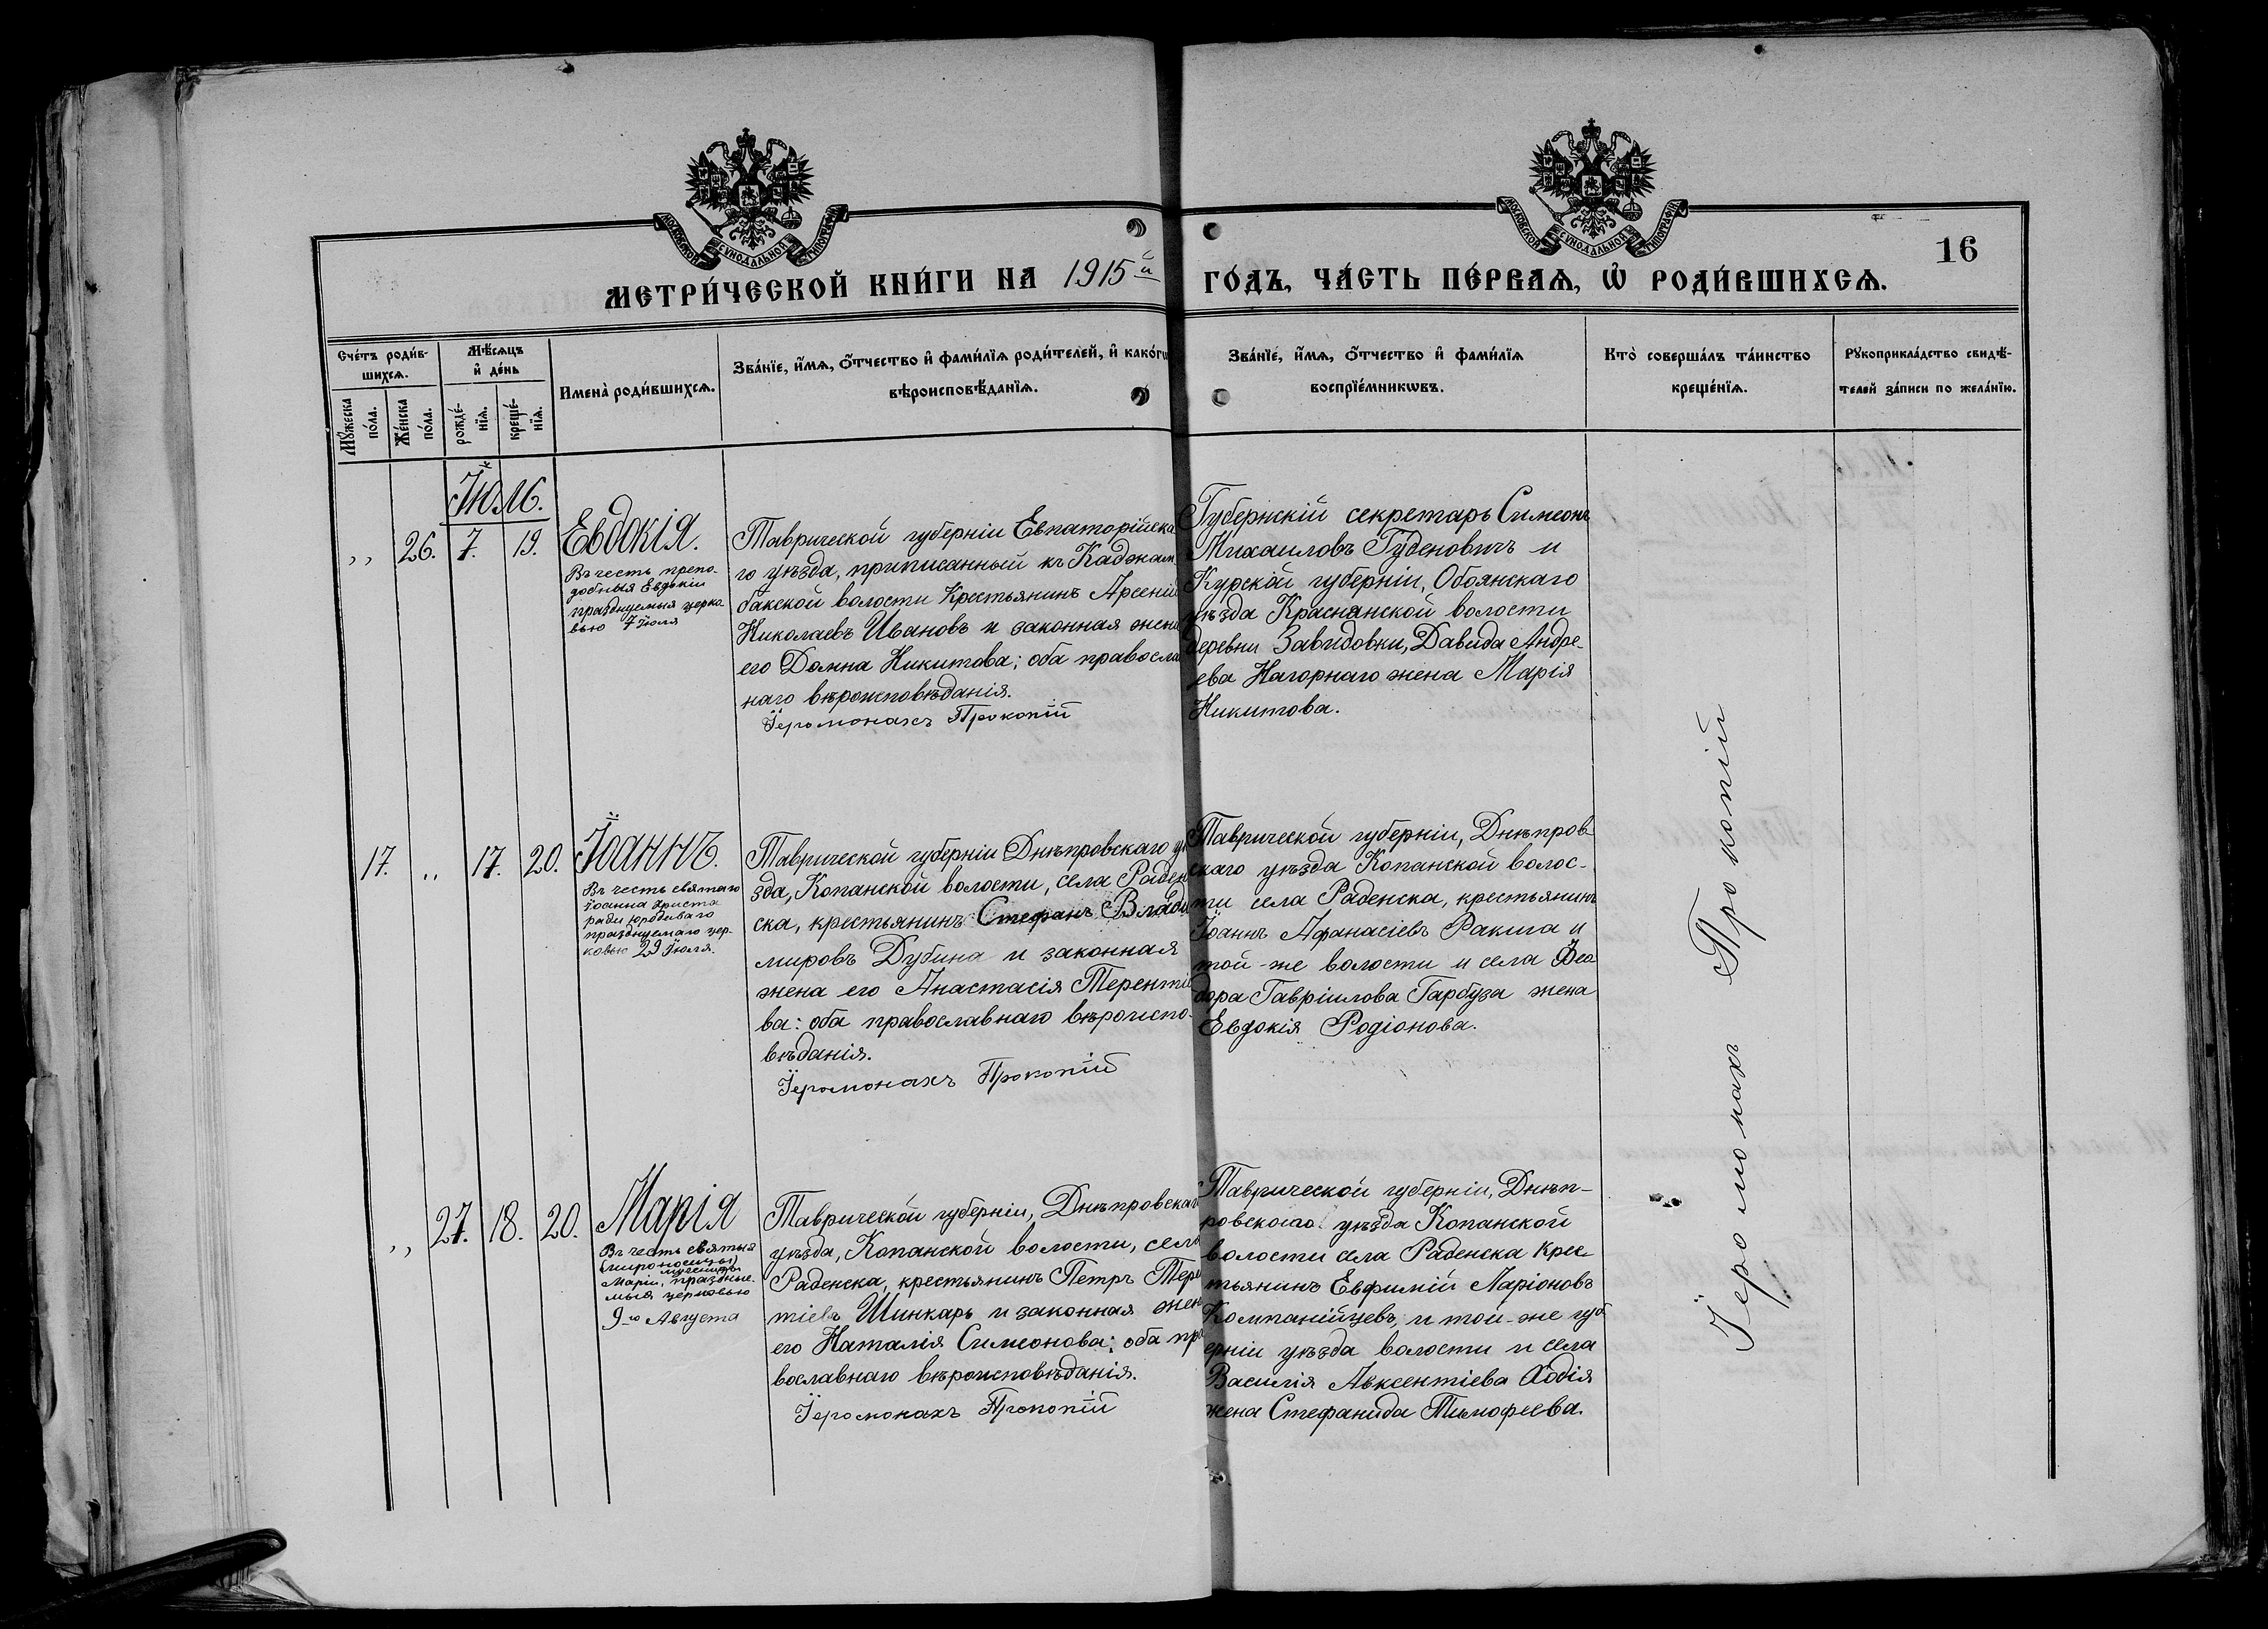 МОСКОВСКОЙ СУНОДАЛЬНОЙ ТИПОГРАФІИ
МОСКОВСКОЙ СУНОДАЛЬНОЙ ТИПОГРАФІИ
16
МЕТРИ́ЧЕСКОЙ КНИ́ГИ НА 1915й ГО́ДЪ, ЧА́СТЬ ПЕ́РВАѦ, Ѡ҆ РОДИ́ВШИХСѦ.
Сче́тъ роди́в-
шихсѧ.
Мꙋ́жеска
по́ла.
Же́нска
по́ла.
Мѣ́сѧцъ
и҆ де́нь
рожде́-
нїѧ.
креще́-
нїѧ.
Имена̀ роди́вшихсѧ.
Зва́нїе, и҆́мѧ, ѻ҆́тчество и҆ фами́лїѧ роди́телей, и҆ како́гѡ
вѣроисповѣ́данїѧ.
Зва́нїе, и҆́мѧ, ѻ҆́тчество и҆ фами́лїѧ
воспрїе́мникѡвъ.
Кто̀ соверша́лъ та́инство
креще́нїѧ.
Рꙋкоприкла́дство свидѣ́-
телей за́писи по жела́нїю.
Іюль.
,, 26. 7. 19.
Евдокія.
Въ честь препо-
добныя Евдокіи
празднуемыя церко-
вью 7 Іюля
Таврической губерніи Евпаторійска
го уѣзда, приписанный къ Каджам
бакской волости Крестьянинъ Арсеній
Николаевъ Ивановъ и законная жена
его Домна Никитова; оба правосла
наго вѣроисповѣданія.
Іеромонахъ Прокопій
Губернскій секретарь Симеонъ
Михаиловъ Гуденовичъ и
Курской губерніи, Обоянскаго
уѣзда Краснянской волости
деревни Завидовки, Давида Андре-
ева Нагорнаго жена Марія
Никитова.
17. ,, 17. 20.
Іоаннъ.
Въ честь святаго
Іоанна Христа
ради юродиваго
празднуемаго цер-
ковью 29 Іюля.
Таврической губерніи Днѣпровскаго уѣ
зда, Копанской волости, села Раден
ска, крестьянинъ Стефанъ Влади
мировъ Дубина и законная
жена его Анастасія Терентіе
ва: оба православнаго вѣроиспо-
вѣданія.
Іеромонахъ Прокопій
Таврической губерніи, Днѣпров-
скаго уѣзда Копанской волос-
ти села Раденска, крестьянинъ
Іоаннъ Афанасіевъ Ракша и
той-же волости и села Ѳео
дора Гавріилова Гарбуза жена
Евдокія Родіонова.
,, 27. 18. 20.
Марія
Въ честь святыя
(мироносицы)
мученицы
Маріи, праздные-
мыя церковью
9-го Августа
Таврической губерніи, Днѣпровскаго
уѣзда, Копанской волости, села
Раденска, крестьянинъ Петръ Терен
тіевъ Шинкарь и законная жена
его Наталія Симеонова; оба пра
вославнаго вѣроисповѣданія.
Іеромонахъ Прокопій
Таврической губерніи, Днѣп-
ровскаго уѣзда Копанской
волости села Раденска крес-
тьянинъ Евфимій Ларіоновъ
Компанійцевъ, и той-же губ
ерніи уѣзда волости и села
Василія Авксентіева Хобія
жена Стефанида Тимофеева.
Іеромонахъ Прокопій